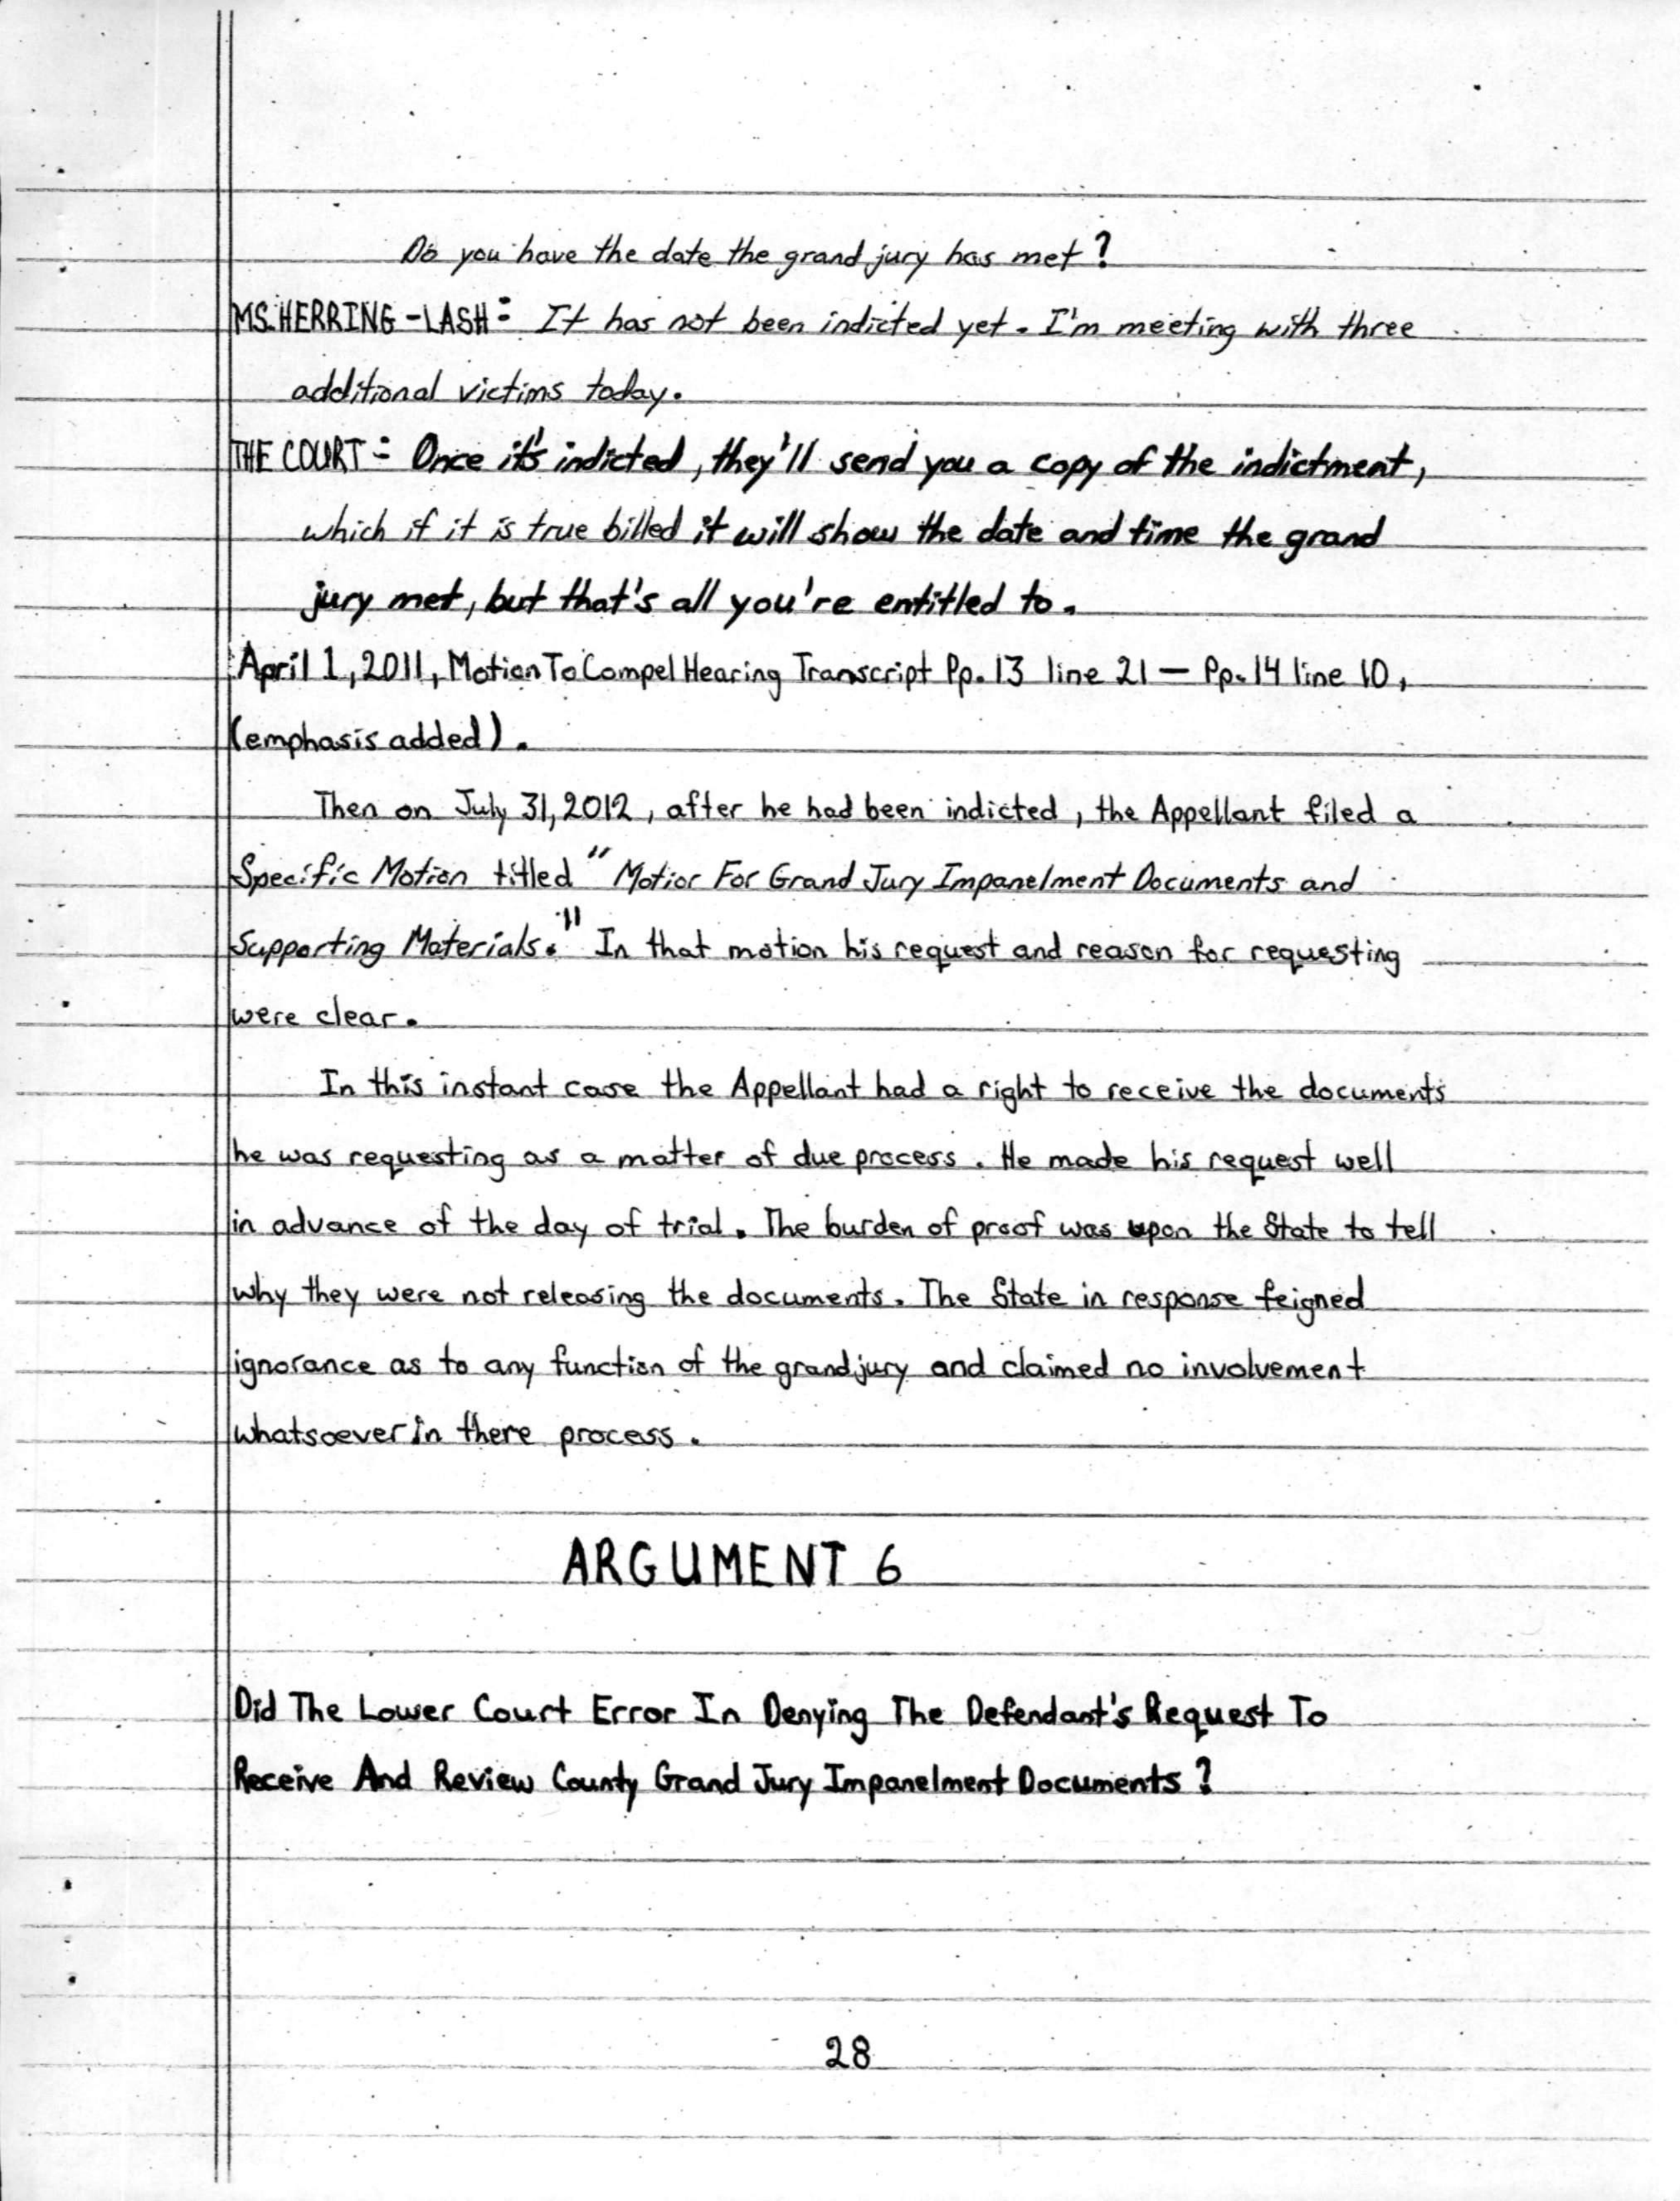 Do you have the date the grand jury has met?
MS. HERRING-LASH: It has not been indicted yet. I'm meeting with three
additional victims today.
THE COURT: Once it's indicted, they'll send you a copy of the indictment,
which if it is true billed it will show the date and time the grand
jury met, but that's all you're entitled to.
April 1, 2011, Motion To Compel Hearing Transcript Pp. 13 line 21 — Pp. 14 line 10,
(emphasis added).
Then on July 31, 2012, after he had been indicted, the Appellant filed a
Specific Motion titled "Motion For Grand Jury Impanelment Documents and
Supporting Materials." In that motion his request and reason for requesting
were clear.
In this instant case the Appellant had a right to receive the documents
he was requesting as a matter of due process. He made his request well
in advance of the day of trial. The burden of proof was upon the State to tell
why they were not releasing the documents. The State in response feigned
ignorance as to any function of the grand jury and claimed no involvement
whatsoever in there process.
ARGUMENT 6
Did The Lower Court Error In Denying The Defendant's Request To
Receive And Review County Grand Jury Impanelment Documents?
28